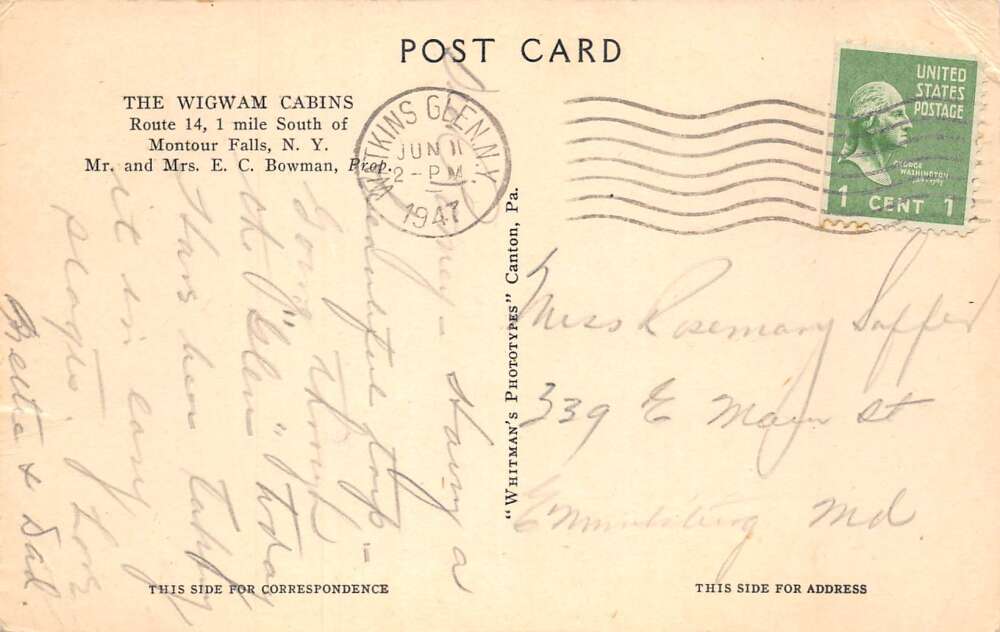 POST CARD
THE WIGWAM CABINS
Route 14, 1 mile South of
Montour Falls, N. Y.
Mr. and Mrs. E. C. Bowman, Prop.
WATKINS GLEN, N.Y.
JUN 11
2 - PM
1947
UNITED
STATES
POSTAGE
GEORGE
WASHINGTON
1 CENT 1
"WHITMAN'S PHOTOTYPES" Canton, Pa.
- Having a
beautiful trip -
Going through
the "Glen" today
Hans been taking
it in easy
stages. Love
Bettie & Dad.
Miss Rosemary Saffer
339 E Main St
Emmitsburg Md
THIS SIDE FOR CORRESPONDENCE
THIS SIDE FOR ADDRESS